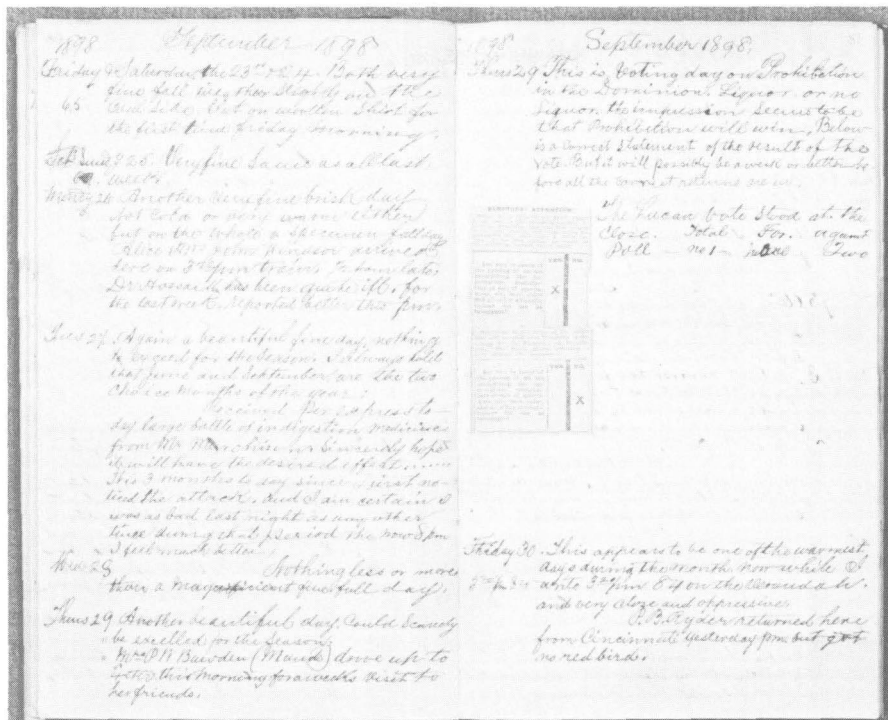 1898 September 1898
Friday & Saturday the 23rd & 24. Both very
fine fall weather steady and the
65 Put on woollen shirt for
the first time Friday morning.
25 Very fine Same as all last
week.
Monday 26 Another very fine brisk day
Not Cold or very warm either
but on the whole a Specimen fall day
Alice & Mrs John Windsor arrived
here on 3 pm train,
Dr Hossack has been quite ill, for
the last week. Reported better this pm.
Tues 27. Again a beautiful fine day, nothing
to exceed for the Season. I always hold
that June and September are the two
Choice months of the year.
Received Per express to-
day large bottle of indigestion medicine
from Mr Sincerely hope
it will have the desired effect
This 3 months to day since I first no-
ticed the attack. And I am certain I
was as bad last night as any other
time during that period now 3 pm
I feel much better
Wed 28 Nothing less or more
than a magnificent fine full day.
Thurs 29 Another beautiful day, Could Scarcely
be excelled for the Season
Mrs P W Bawden (Maud) drove up to
this morning for a weeks visit to
her friends.
1898 September 1898,
Thurs 29 This is Voting day on Prohibition
in the Dominion. Liquor or no
Liquor. the impression Seems to be
that Prohibition will win, Below
is a Correct Statement of the result of the
vote. But it will possibly be a week or better be-
fore all the correct returns
The Lucan Vote Stood at the
Close. Total For. against
Poll no 1 Two
X
X
Friday 30. This appears to be one of the warmest
days during the month now while I
84 write 3 pm 84 on the Veranda
and very close and oppressive
P. B. Ryder returned here
from Cincinnati yesterday pm but got
no red bird.